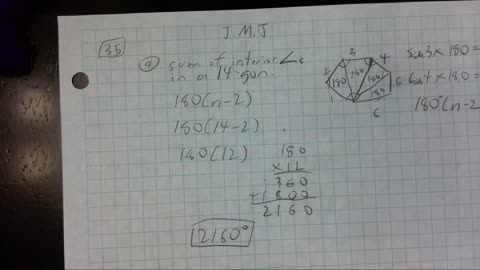 J.M.J
35
a sum of interior ∠s
in a 14-gon.
180(n-2)
180(14-2)
180(12)
180
×12
360
+1800
2160
2160°
1 2 3 4 6
180 180 180 180
3×180=
4×180=
180°(n-2